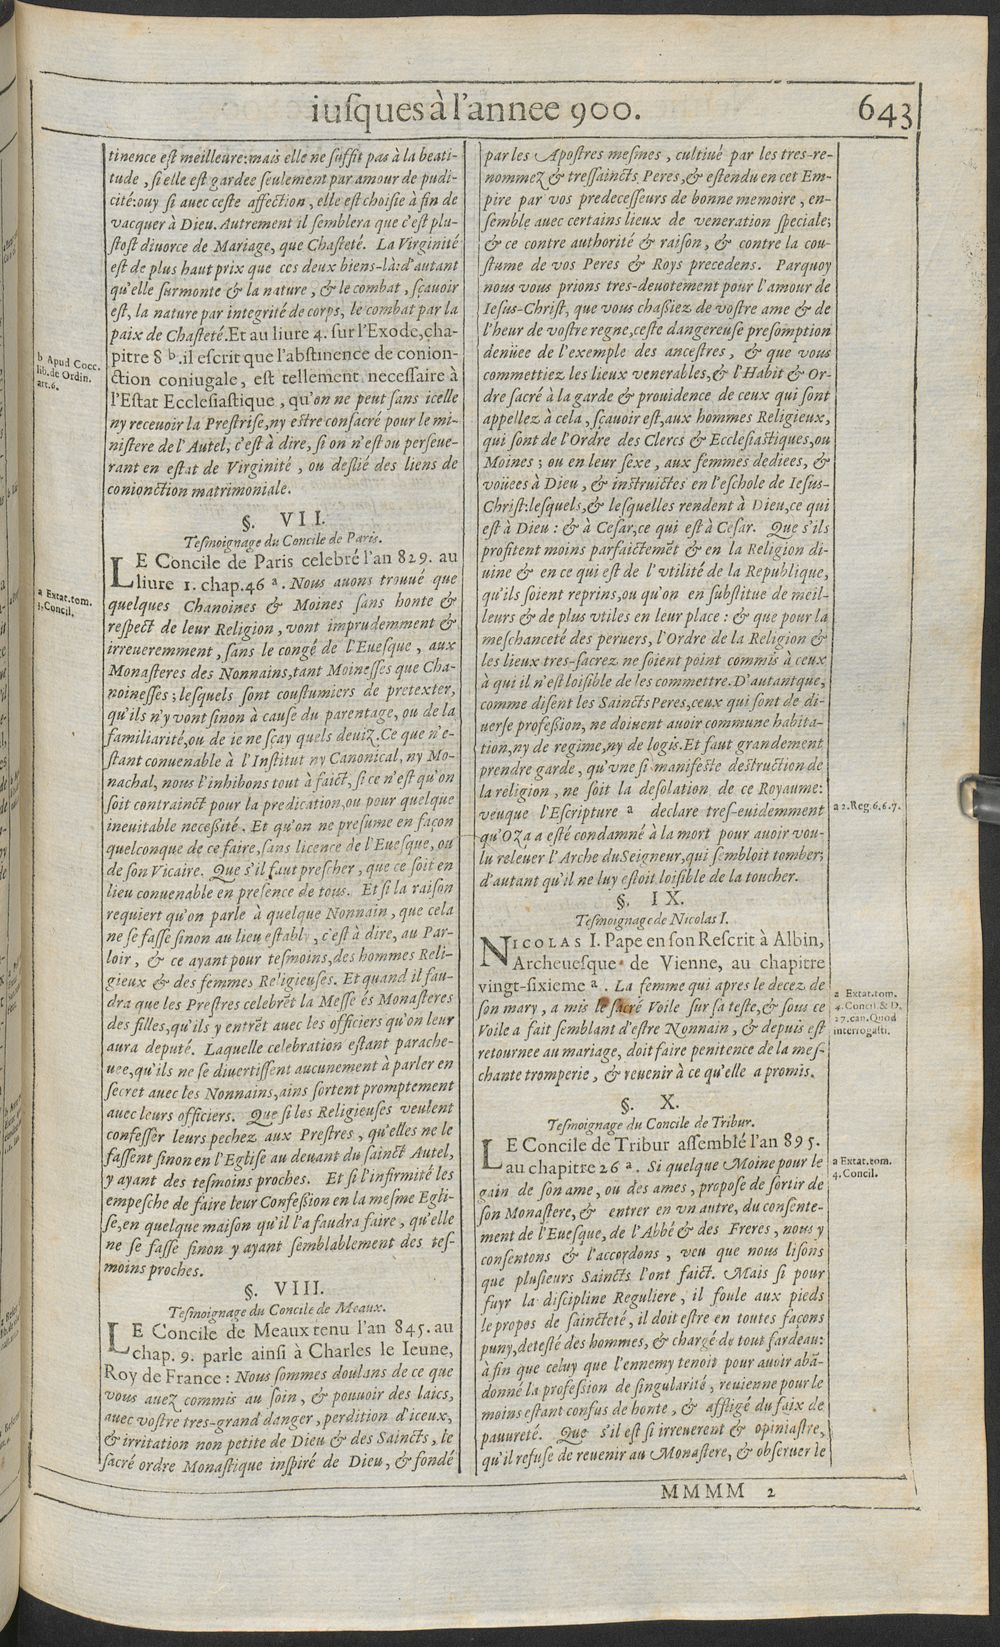 iuſques à l'annee 900. 643
tinence eſt meilleure:mais elle ne ſuffit pas à la beati-
tude, ſi elle eſt gardee ſeulement par amour de pudi-
cité:ouy ſi auec ceſte affection, elle eſt choiſie à fin de
vacquer à Dieu. Autrement il ſemblera que c'eſt plu-
ſtoſt diuorce de Mariage, que Chaſteté. La Virginité
eſt de plus haut prix que ces deux biens-là: d'autant
qu'elle ſurmonte & la nature, & le combat, ſçauoir
eſt, la nature par integrité de corps, le combat par la
paix de Chaſteté. Et au liure 4. ſur l'Exode, cha-
pitre 8 b. il eſcrit que l'abſtinence de conion-
ction coniugale, eſt tellement neceſſaire à
l'Eſtat Eccleſiaſtique, qu'on ne peut ſans icelle
ny receuoir la Preſtriſe, ny eſtre conſacré pour le mi-
niſtere de l'Autel, c'eſt à dire, ſi on n'eſt ou perſeue-
rant en eſtat de Virginité, ou deſlié des liens de
conionction matrimoniale.
b Apud Cocc.
lib. de Ordin.
art. 6.
§. VII.
Teſmoignage du Concile de Paris.
LE Concile de Paris celebré l'an 829. au
liure 1. chap. 46 a. Nous auons trouué que
quelques Chanoines & Moines ſans honte &
reſpect de leur Religion, vont imprudemment &
irreueremment, ſans le congé de l'Eueſque, aux
Monaſteres des Nonnains, tant Moineſſes que Cha-
noineſſes; leſquels ſont couſtumiers de pretexter,
qu'ils n'y vont ſinon à cauſe du parentage, ou de la
familiarité, ou de ie ne ſçay quels deuiz. Ce que n'e-
ſtant conuenable à l'Inſtitut ny Canonical, ny Mo-
nachal, nous l'inhibons tout à faict, ſi ce n'eſt qu'on
ſoit contrainct pour la predication, ou pour quelque
ineuitable neceſſité. Et qu'on ne preſume en façon
quelconque de ce faire, ſans licence de l'Eueſque, ou
de ſon Vicaire. Que s'il faut preſcher, que ce ſoit en
lieu conuenable en preſence de tous. Et ſi la raiſon
requiert qu'on parle à quelque Nonnain, que cela
ne ſe faſſe ſinon au lieu eſtably, c'eſt à dire, au Par-
loir, & ce ayant pour teſmoins, des hommes Reli-
gieux & des femmes Religieuſes. Et quand il fau-
dra que les Preſtres celebrēt la Meſſe és Monaſteres
des filles, qu'ils y entrēt auec les officiers qu'on leur
aura deputé. Laquelle celebration eſtant parache-
uee, qu'ils ne ſe diuertiſſent aucunement à parler en
ſecret auec les Nonnains, ains ſortent promptement
auec leurs officiers. Que ſi les Religieuſes veulent
confeſſer leurs pechez aux Preſtres, qu'elles ne le
faſſent ſinon en l'Egliſe au deuant du ſainct Autel,
y ayant des teſmoins proches. Et ſi l'infirmité les
empeſche de faire leur Confeſſion en la meſme Egli-
ſe, en quelque maiſon qu'il l'a faudra faire, qu'elle
ne ſe faſſe ſinon y ayant ſemblablement des teſ-
moins proches.
a Extat. tom.
3. Concil.
§. VIII.
Teſmoignage du Concile de Meaux.
LE Concile de Meaux tenu l'an 845. au
chap. 9. parle ainſi à Charles le Ieune,
Roy de France: Nous ſommes doulans de ce que
vous auez commis au ſoin, & pouuoir des laics,
auec voſtre tres-grand danger, perdition d'iceux,
& irritation non petite de Dieu & des Saincts, le
ſacré ordre Monaſtique inſpiré de Dieu, & fondé
par les Apoſtres meſmes, cultiué par les tres-re-
nommez & treſſaincts Peres, & eſtendu en cet Em-
pire par vos predeceſſeurs de bonne memoire, en-
ſemble auec certains lieux de veneration ſpeciale;
& ce contre authorité & raiſon, & contre la cou-
ſtume de vos Peres & Roys precedens. Parquoy
nous vous prions tres-deuotement pour l'amour de
Ieſus-Chriſt, que vous chaſſiez de voſtre ame & de
l'heur de voſtre regne, ceſte dangereuſe preſomption
denüee de l'exemple des anceſtres, & que vous
commettiez les lieux venerables, & l'Habit & Or-
dre ſacré à la garde & prouidence de ceux qui ſont
appellez à cela, ſçauoir eſt, aux hommes Religieux,
qui ſont de l'Ordre des Clercs & Eccleſiaſtiques, ou
Moines; ou en leur ſexe, aux femmes dediees, &
voüees à Dieu, & inſtruictes en l'eſchole de Ieſus-
Chriſt:leſquels, & leſquelles rendent à Dieu, ce qui
eſt à Dieu: & à Ceſar, ce qui eſt à Ceſar. Que s'ils
profitent moins parfaictemēt & en la Religion di-
uine & en ce qui eſt de l'vtilité de la Republique,
qu'ils ſoient reprins, ou qu'on en ſubſtitue de meil-
leurs & de plus vtiles en leur place: & que pour la
meſchanceté des peruers, l'Ordre de la Religion &
les lieux tres-ſacrez ne ſoient point commis à ceux
à qui il n'eſt loiſible de les commettre. D'autant que,
comme diſent les Saincts Peres, ceux qui ſont de di-
uerſe profeſſion, ne doiuent auoir commune habita-
tion, ny de regime, ny de logis. Et faut grandement
prendre garde, qu'vne ſi manifeſte deſtruction de
la religion, ne ſoit la deſolation de ce Royaume:
veuque l'Eſcripture a declare treſ-euidemment
qu'OZa a eſté condamné à la mort pour auoir vou-
lu releuer l'Arche du Seigneur, qui ſembloit tomber;
d'autant qu'il ne luy eſtoit loiſible de la toucher.
a 2. Reg. 6.6.7.
§. IX.
Teſmoignage de Nicolas I.
NICOLAS I. Pape en ſon Reſcrit à Albin,
Archeueſque de Vienne, au chapitre
vingt-ſixieme a. La femme qui apres le decez de
ſon mary, a mis le ſacré Voile ſur ſa teſte, & ſous ce
Voile a fait ſemblant d'eſtre Nonnain, & depuis eſt
retournee au mariage, doit faire penitence de la meſ-
chante tromperie, & reuenir à ce qu'elle a promis.
a Extat. tom.
4. Concil. & D.
27. can. Quod
interrogaſti.
§. X.
Teſmoignage du Concile de Tribur.
LE Concile de Tribur aſſemblé l'an 895.
au chapitre 26 a. Si quelque Moine pour le
gain de ſon ame, ou des ames, propoſe de ſortir de
ſon Monaſtere, & entrer en vn autre, du conſente-
ment de l'Eueſque, de l'Abbé & des Freres, nous y
conſentons & l'accordons, veu que nous liſons
que pluſieurs Saincts l'ont faict. Mais ſi pour
fuyr la diſcipline Reguliere, il foule aux pieds
le propos de ſaincteté, il doit eſtre en toutes façons
puny, deteſté des hommes, & chargé de tout fardeau:
à fin que celuy que l'ennemy tenoit pour auoir abā-
donné la profeſſion de ſingularité, reuienne pour le
moins eſtant confus de honte, & affligé du faix de
pauureté. Que s'il eſt ſi irreuerent & opiniaſtre,
qu'il refuſe de reuenir au Monaſtere, & obſeruer le
a Extat. tom.
4. Concil.
MMMM 2